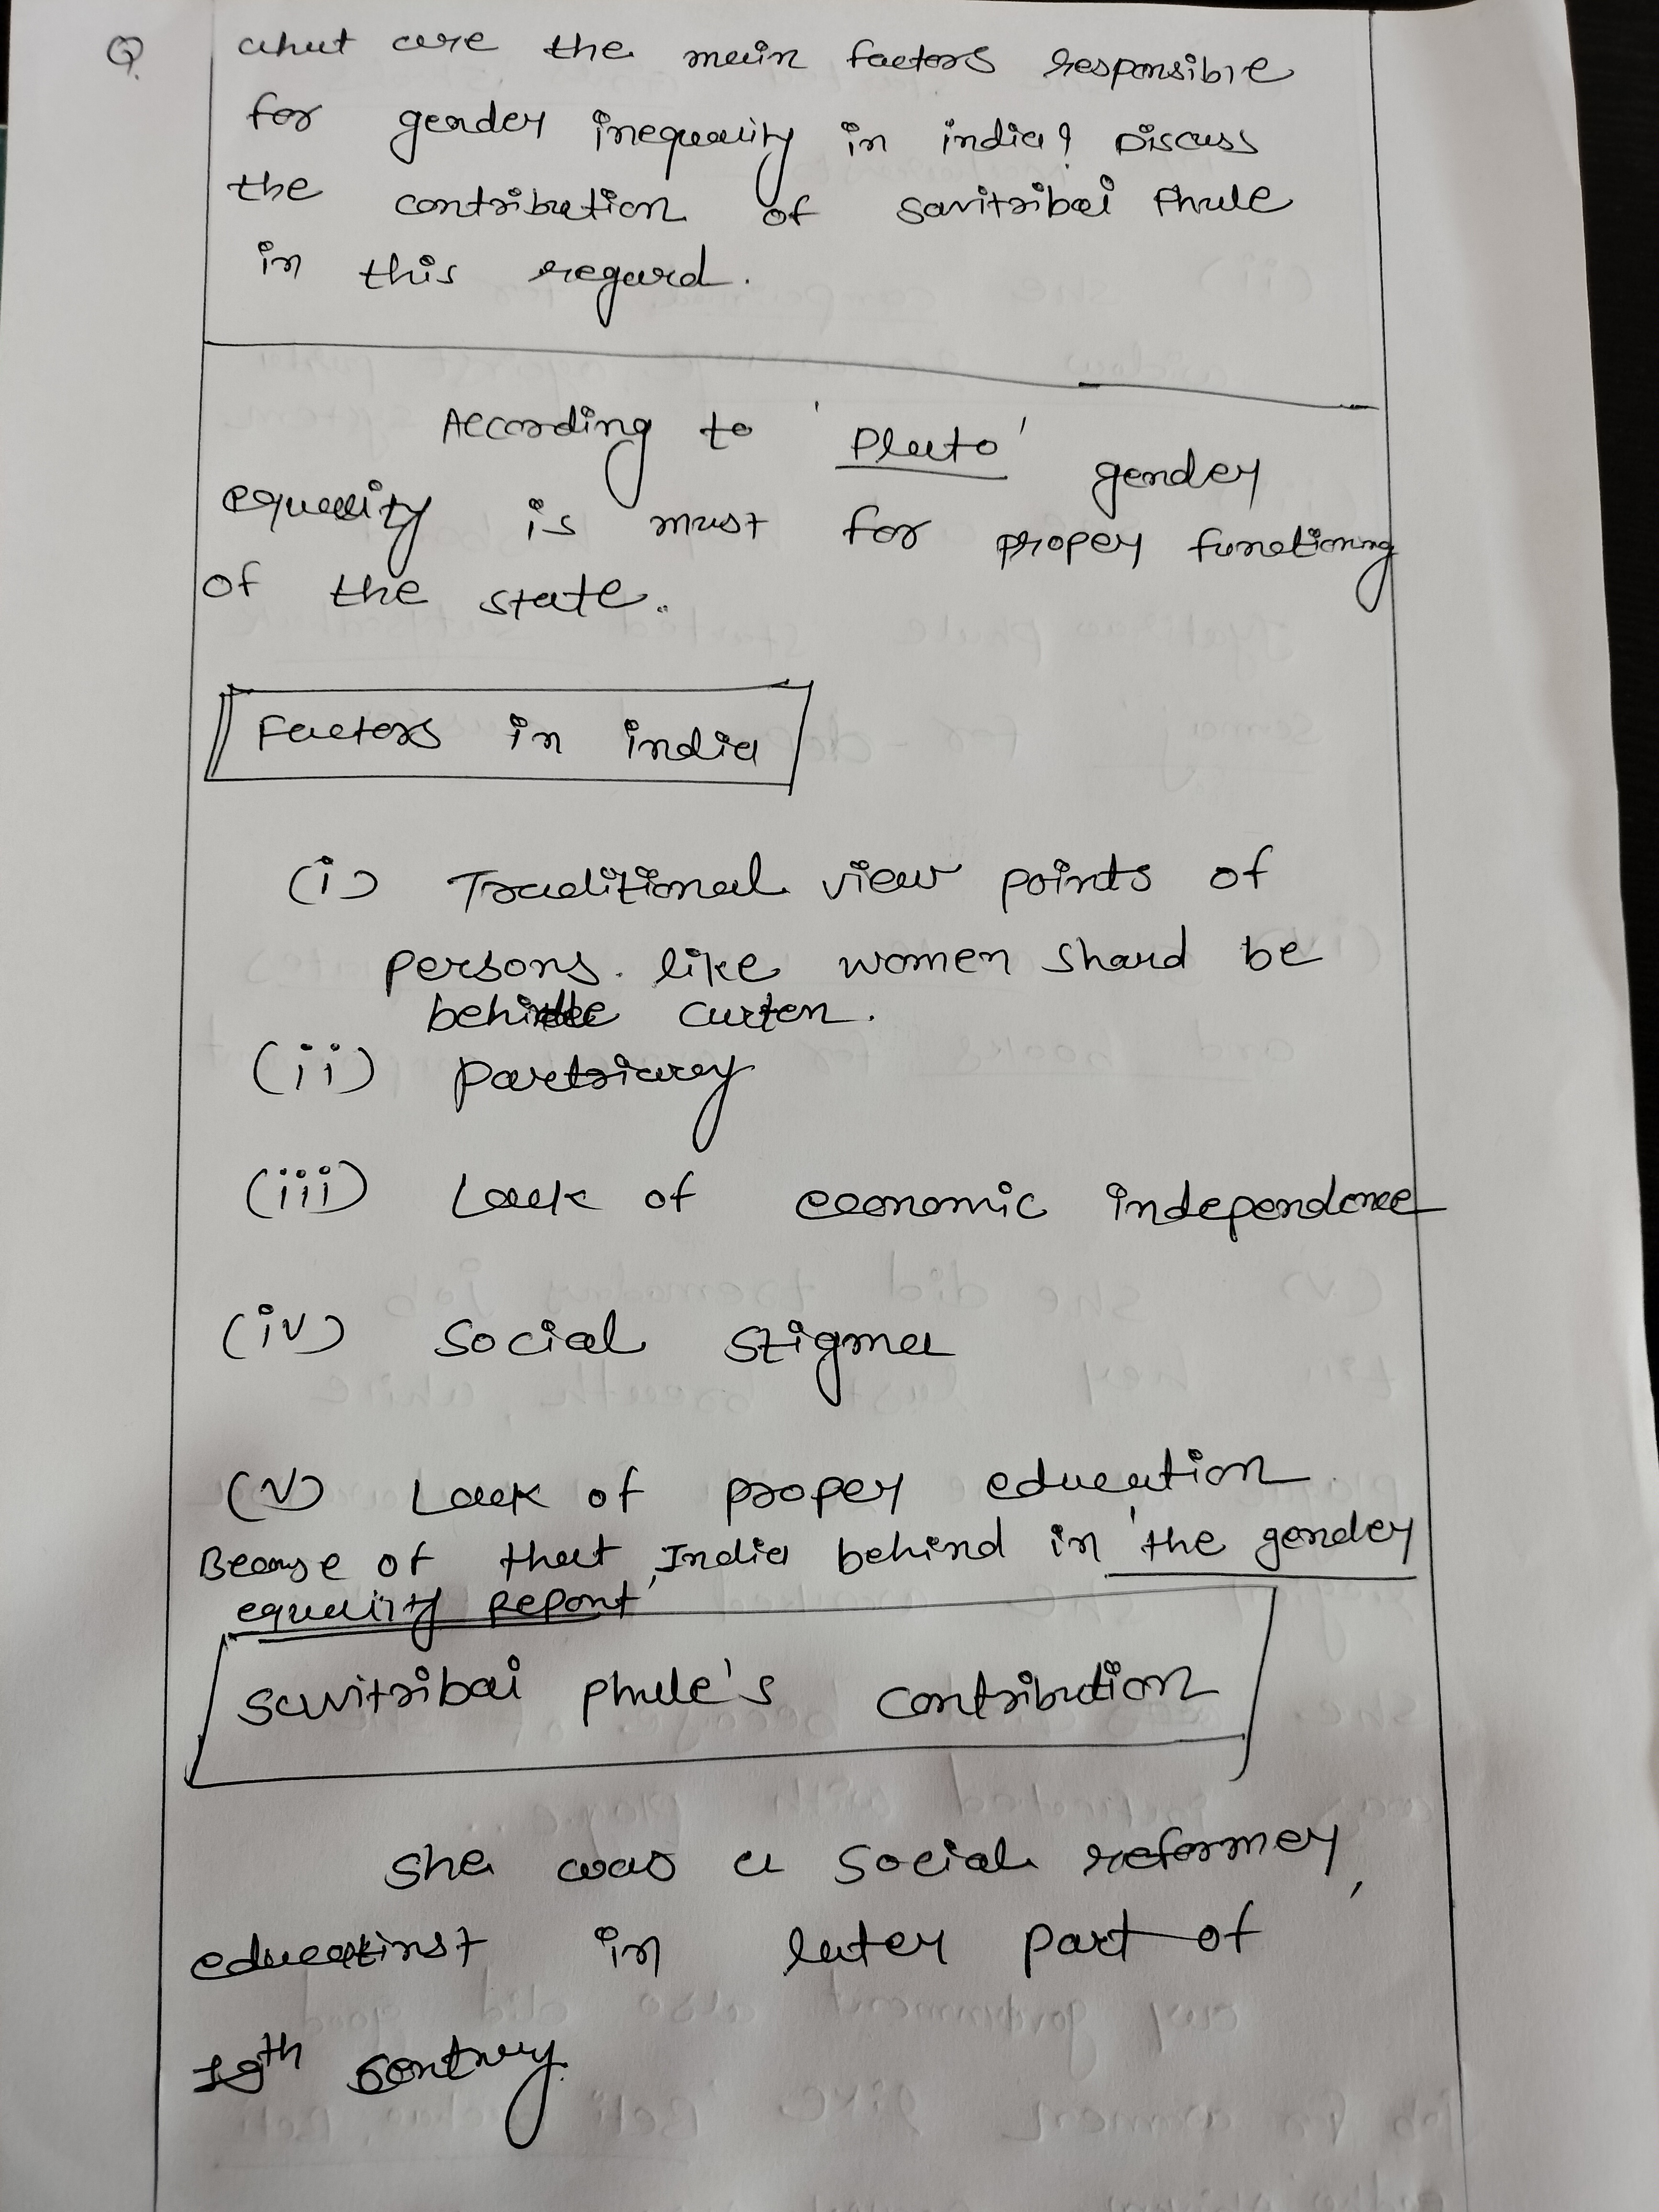 Q. what are the main factors responsible
for gender inequality in india? Discuss
the contribution of savitribai Phule
in this regard.
According to 'Plato' gender
equality is must for proper functioning
of the state.
Factors in india
(i) Traditional view points of
persons. like women shoud be
behind curten.
(ii) partriarcy
(iii) Lack of economic independence
(iv) social stigma
(v) Lack of proper education
Because of that India behind in 'the gender
equality Report'
Savitribai phule's contribution
she was a social reformer,
in later part of
19th